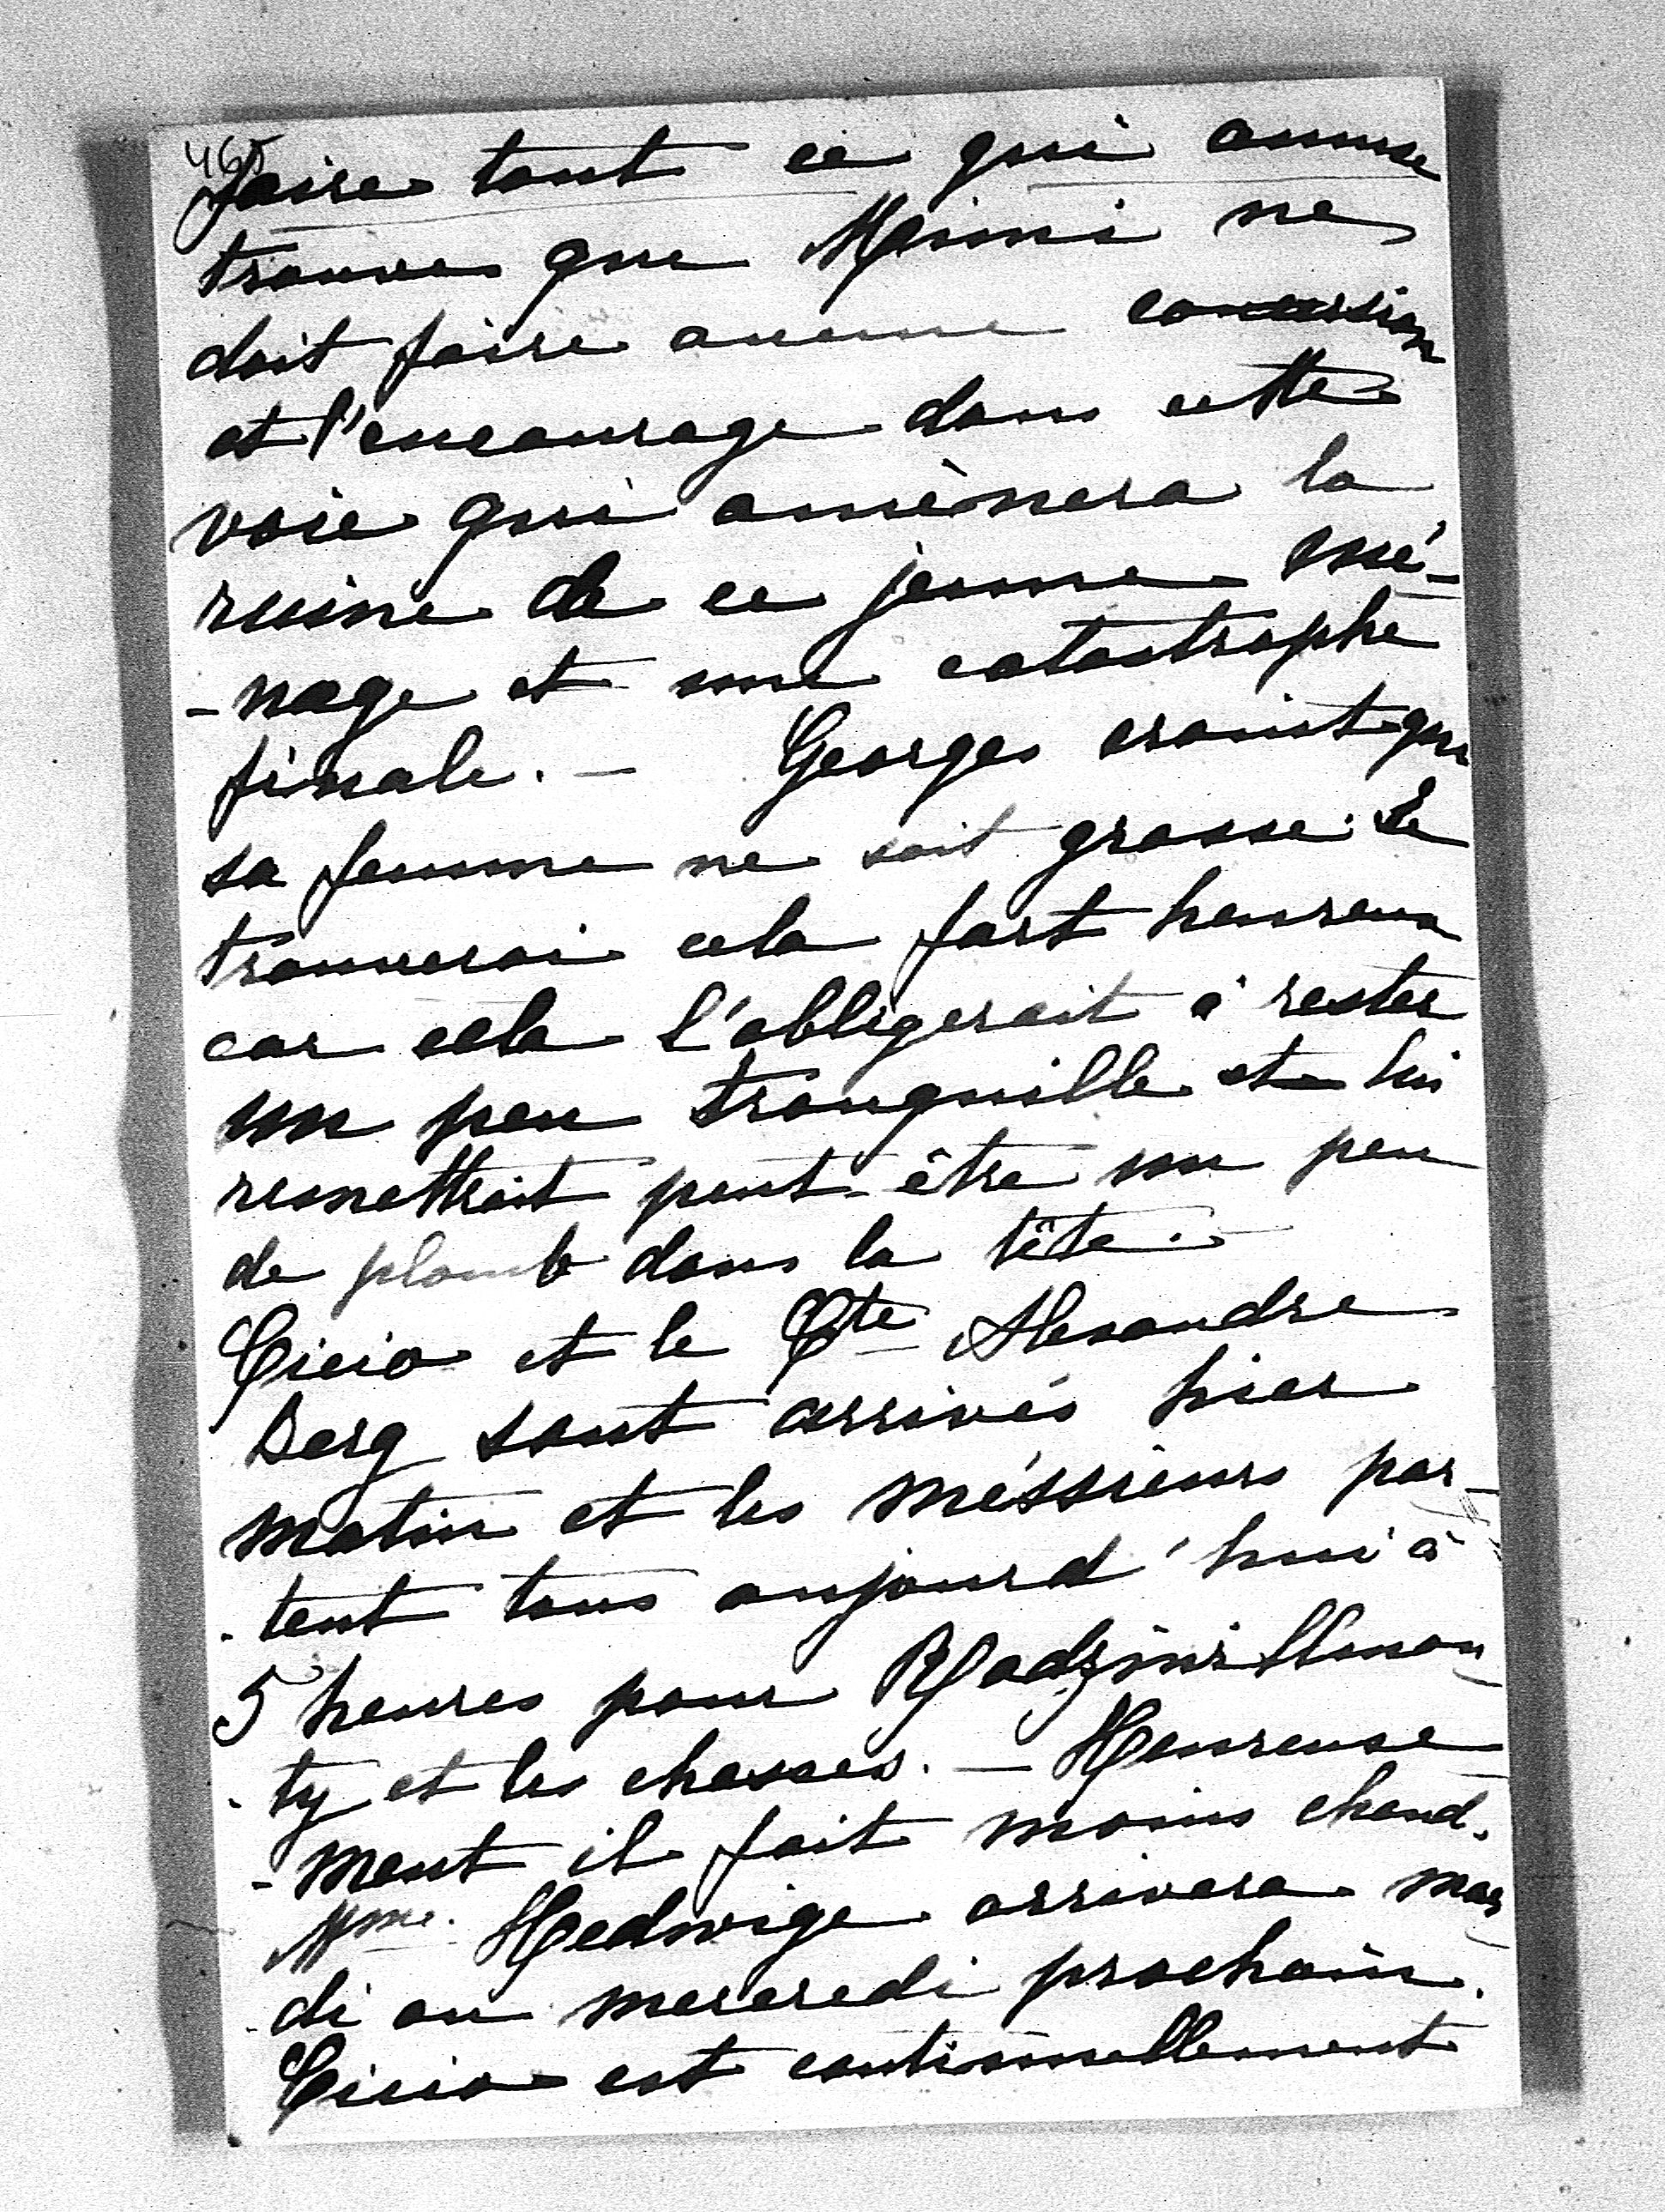 465
faire tout ce qui amuse
trouve que Mimi ne
doit faire aucune concession
et l'encourage dans cette
voie qui amènera la
ruine de ce jeune mé-
-nage et une catastrophe
finale. — Georges craint que
sa femme ne soit grosse. Je
trouverai cela fort heureux
car cela l'obligerait à rester
un peu tranquille et lui
remettrait peut-être un peu
de plomb dans la tête. —
Cicio et le Cte Alexandre
Berg sont arrivés hier
matin et les méssieurs par-
-tent tous aujourd'hui à
5 heures pour Radziwillmon-
-ty et les chasses. — Heureuse
-ment il fait moins chaud.
Mme. Hedwige arrivera mar-
-di ou mercredi prochain.
Cicio est continuellement